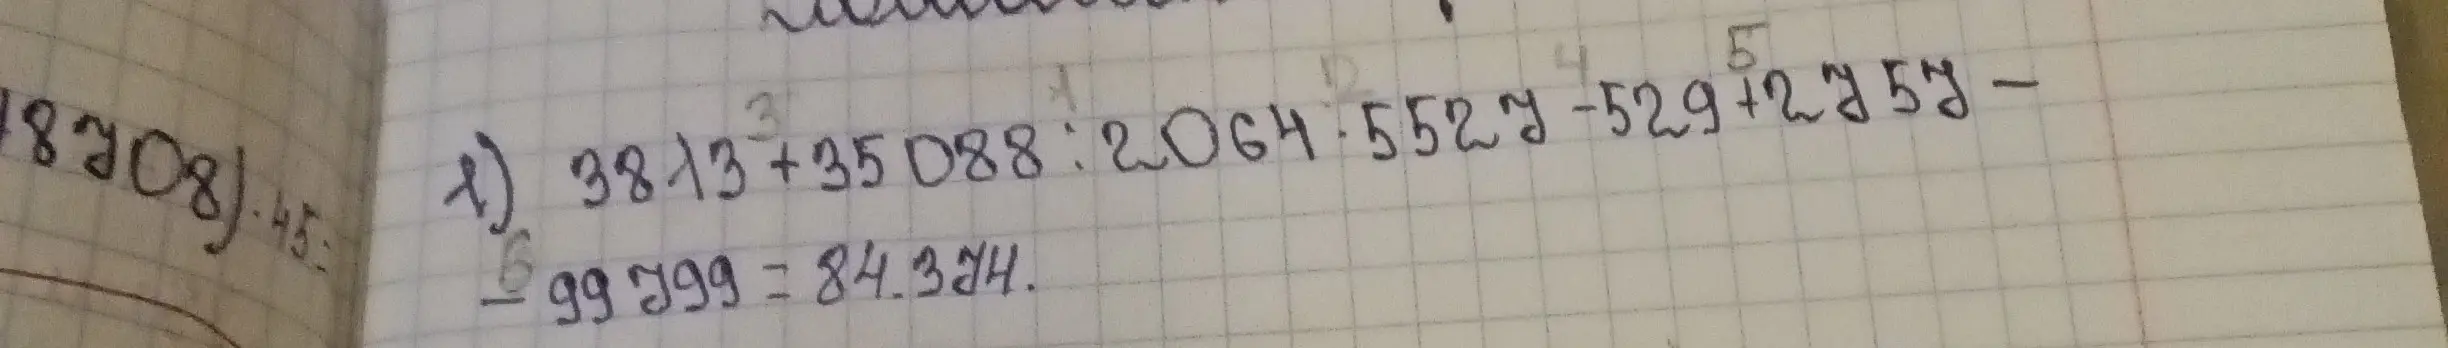 8708)·45:
1) 3813+35088:2064·5527-529+2757-
-99799=84.374.
3 1 2 4 5
6